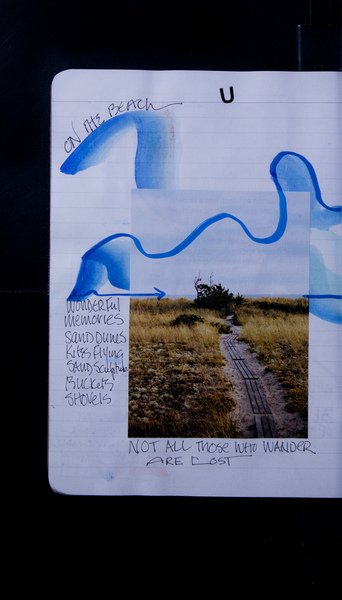 ON THE BEACH
U
WONDERFUL
MEMORIES
SAND DUNES
KITES FLYING
SAND SCULPTURE
BUCKETS
SHOVELS
NOT ALL THOSE WHO WANDER
ARE LOST